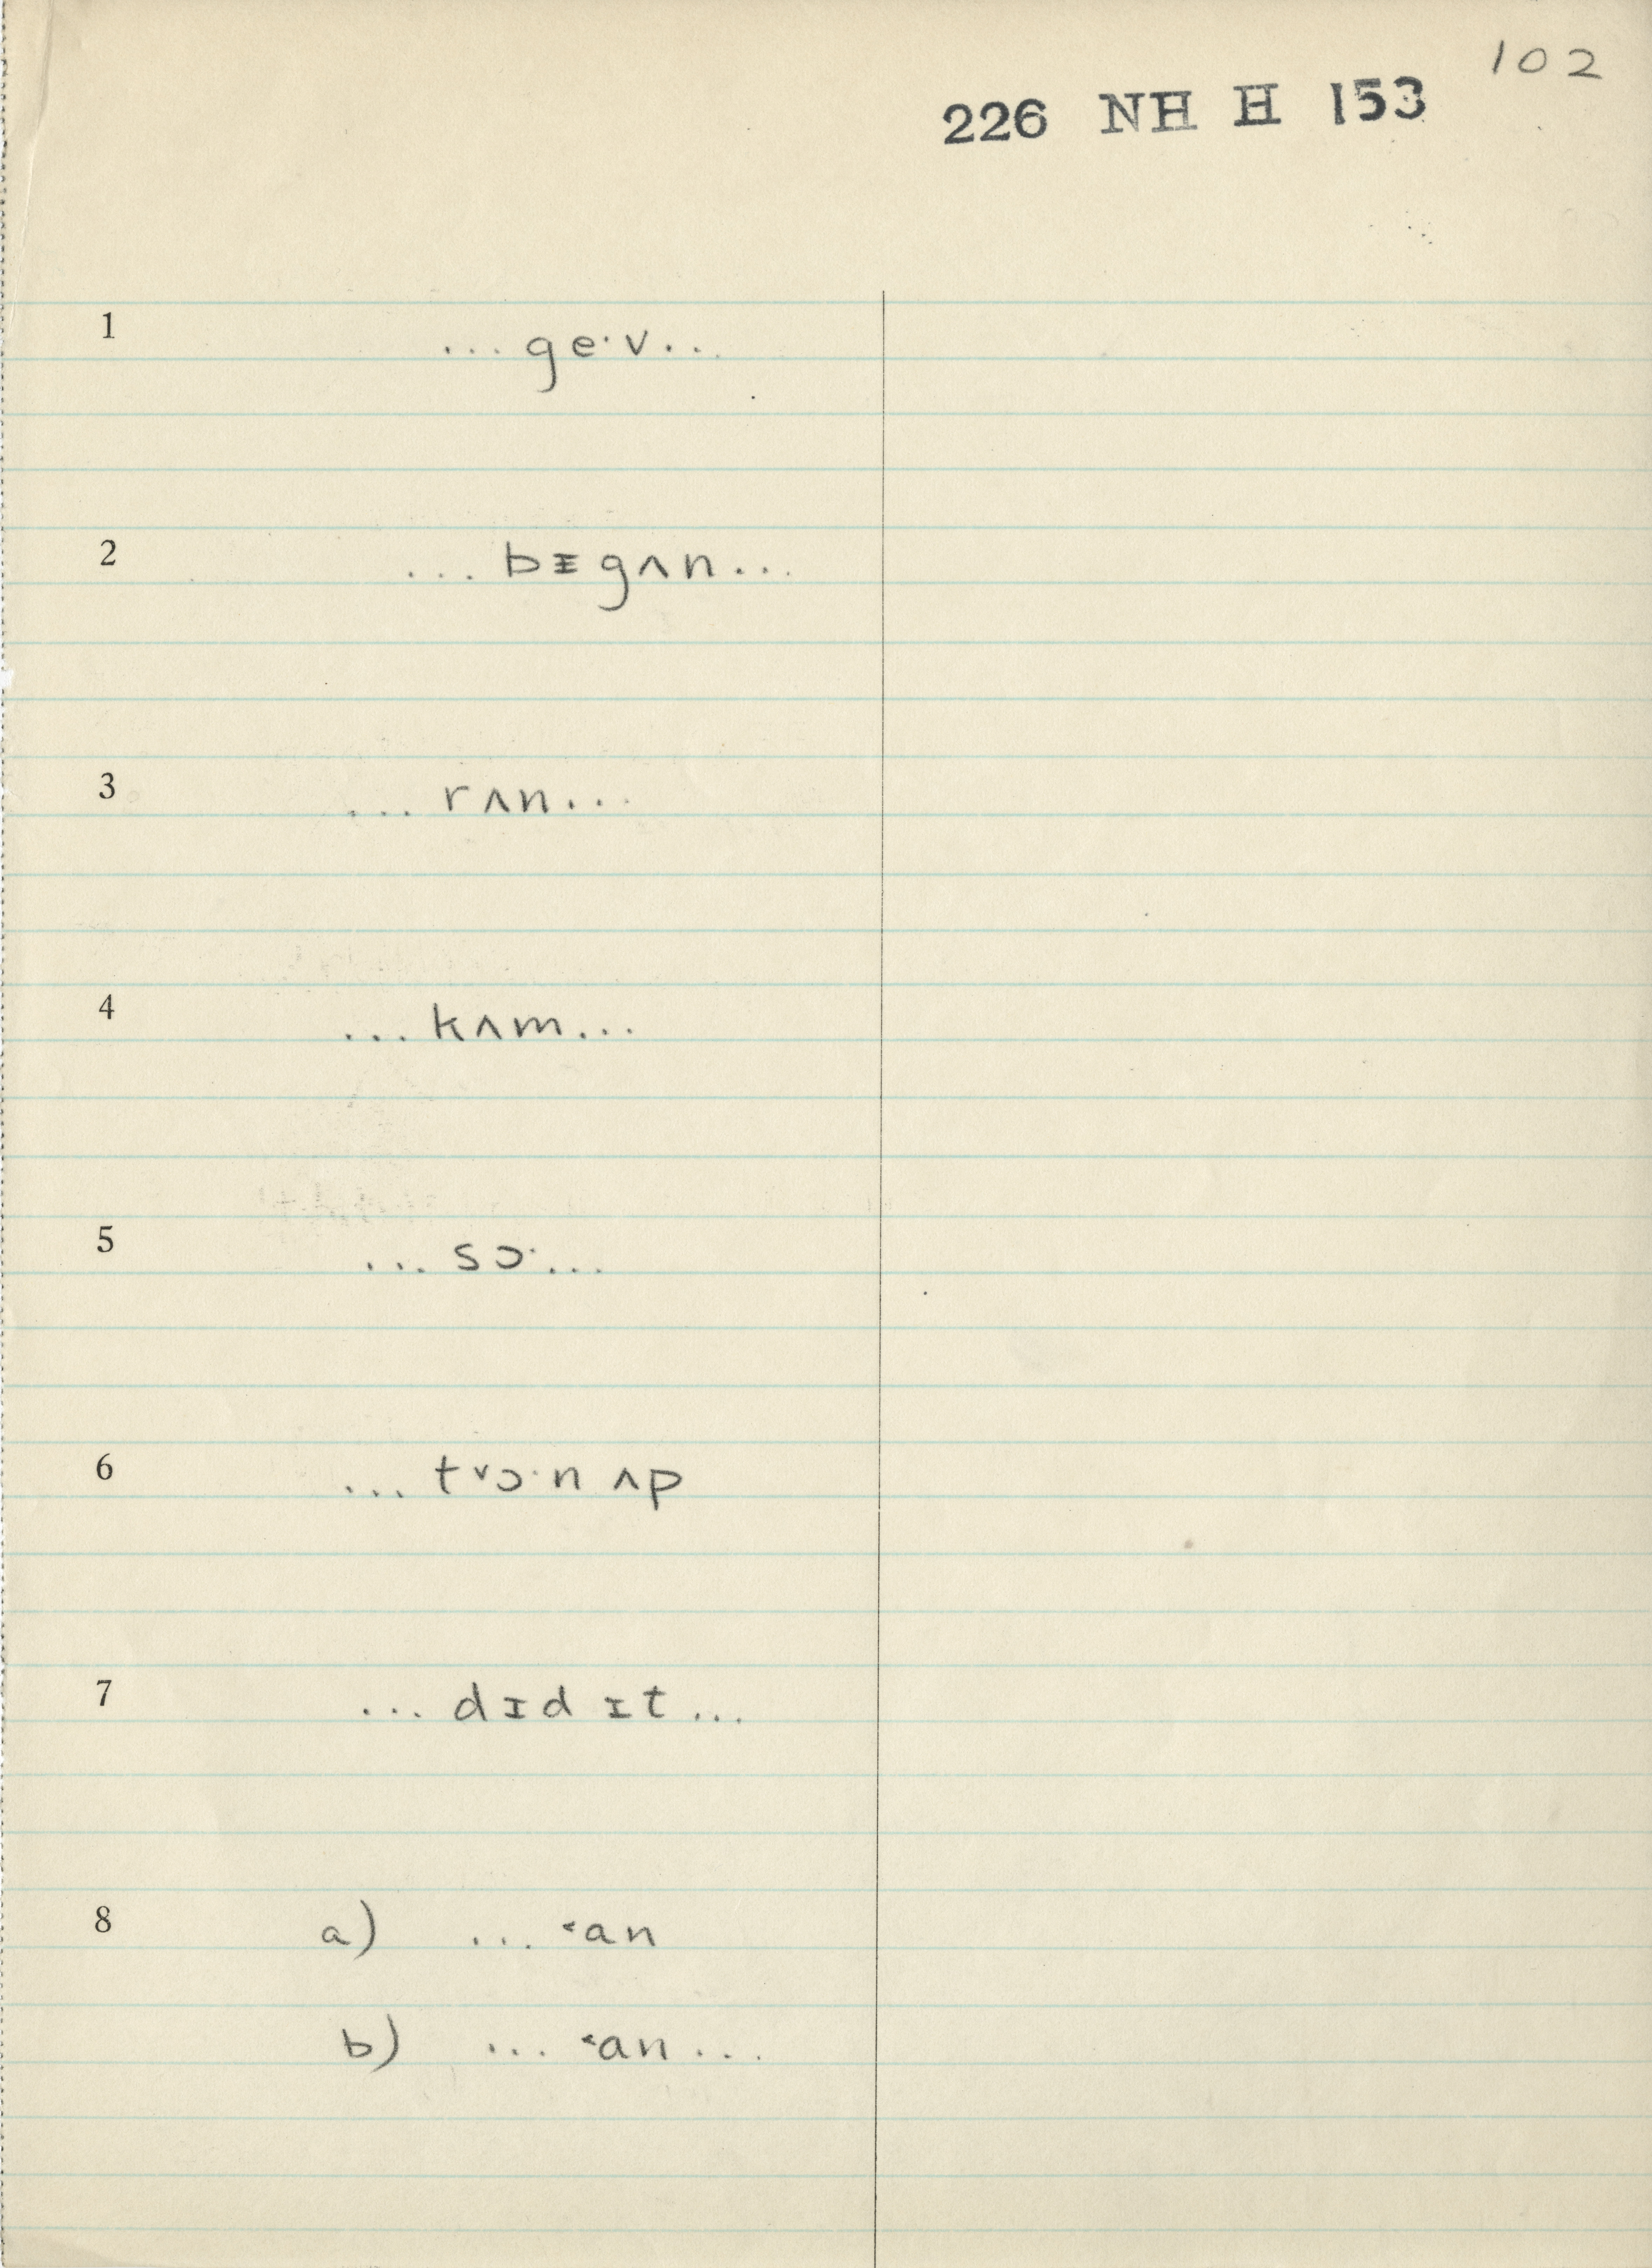 102
226 NH H 153
1 ... geˑv ...
2 ... bᵻgʌn ...
3 ... rʌn ...
4 ... kʌm ...
5 ... sɔˑ ...
6 ... t˅ɔˑn ʌp
7 ... dɪd ɪt ...
8 a) ... ˂an
b) ... ˂an ...